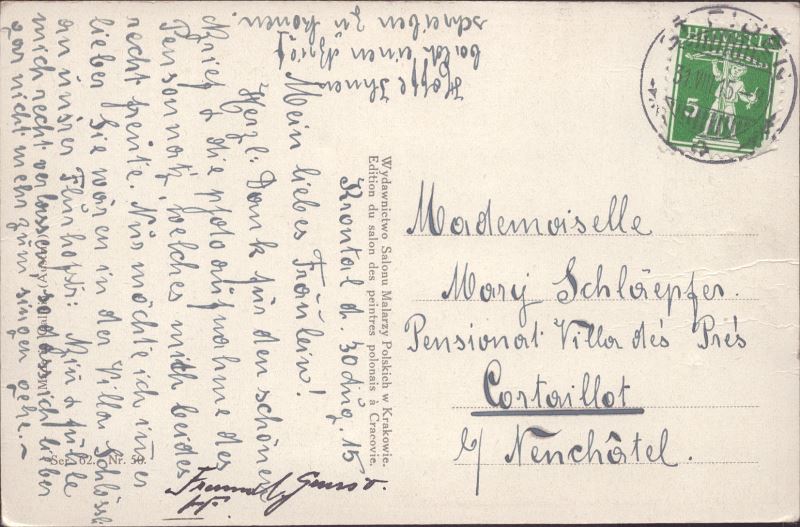 Krontal d. 30 Aug. 15
Mein liebes Fräulein!
Herzl: Dank für den schönen
Brief & die photo aufnahme des
Pensionnatz, welches mich beides
recht freute. Nur möchte ich immer
lieber Sie wären in der Villa Schlössli
an unsrer Flurhofstr: Nun fühle
mich recht verlassen, sodass ich lieber
gar nicht mehr zum singen gehe.~
Hoffe Ihnen
bald einen Brief
schreiben zu können.
Freundl. Gruss v.
Wydawnictwo Salonu Malarzy Polskich w Krakowie.
Edition du salon des peintres polonais à Cracovie.
Ser. 62. Nr. 30
5
31.VIII.15
Mademoiselle
Mary Schläepfer.
Pensionat Villa dés Prés
Cortaillot
b/ Neuchâtel.